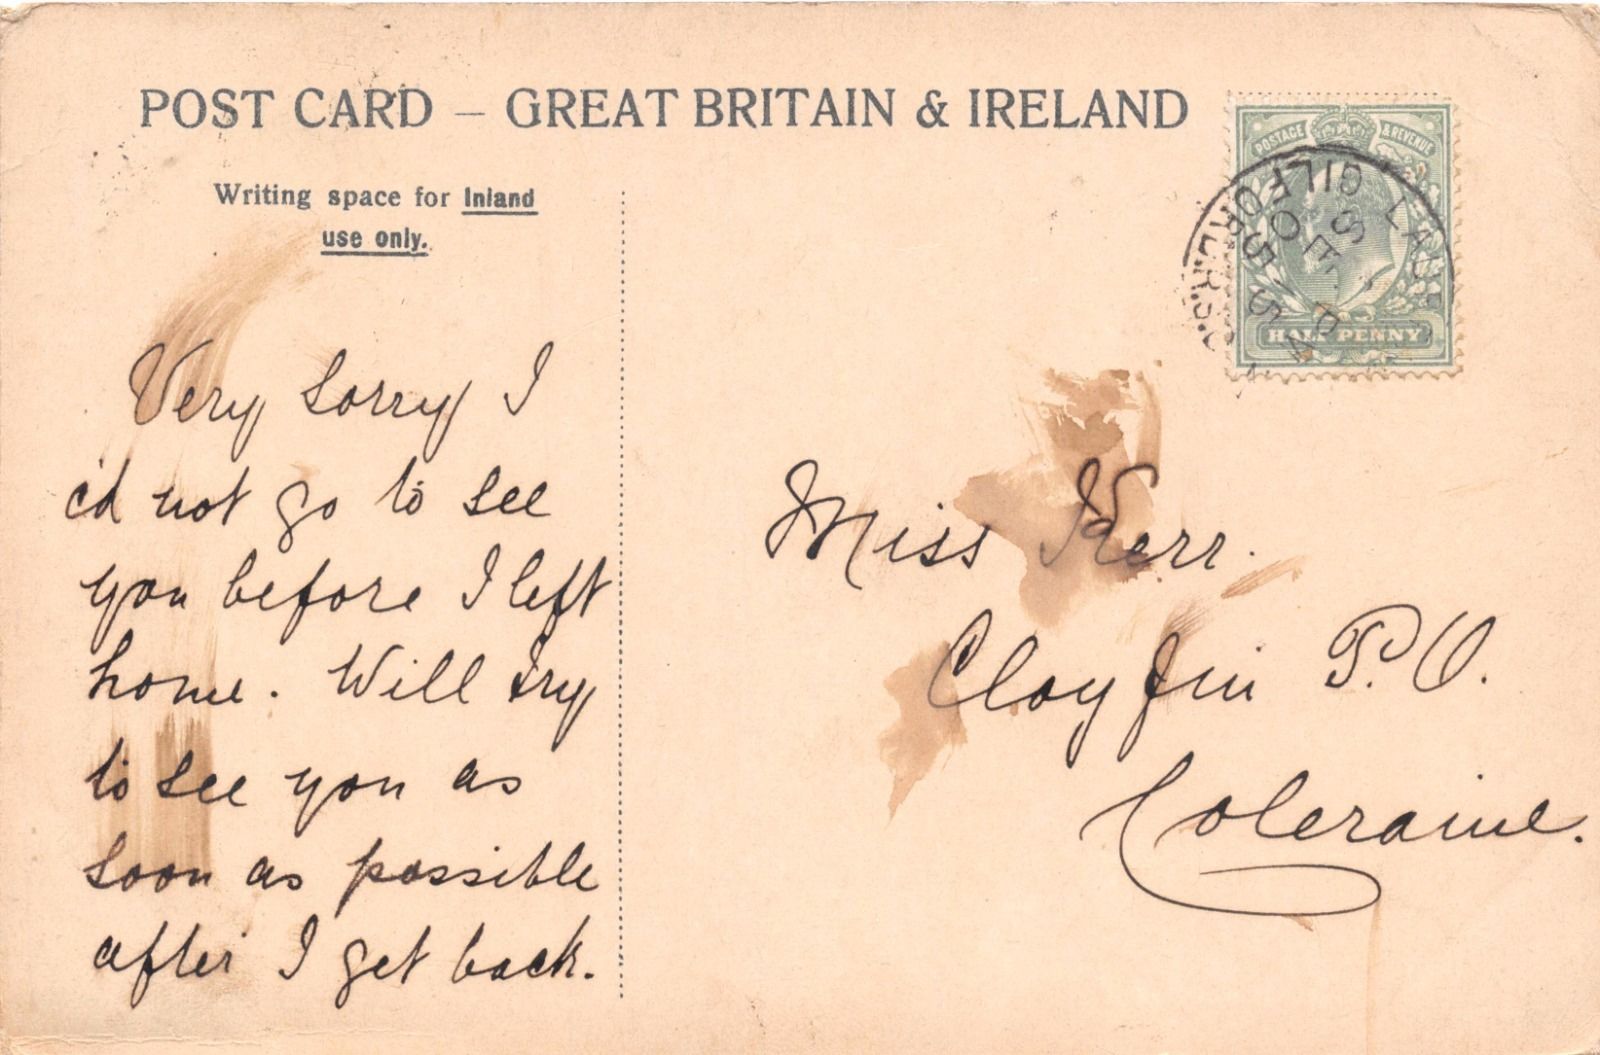 POST CARD — GREAT BRITAIN & IRELAND
Writing space for Inland
use only.
POSTAGE & REVENUE
HALF PENNY
Very sorry I
c'd not go to see
you before I left
home. Will try
to see you as
soon as possible
after I get back.
Miss Kerr.
Cloyfin P.O.
Coleraine.